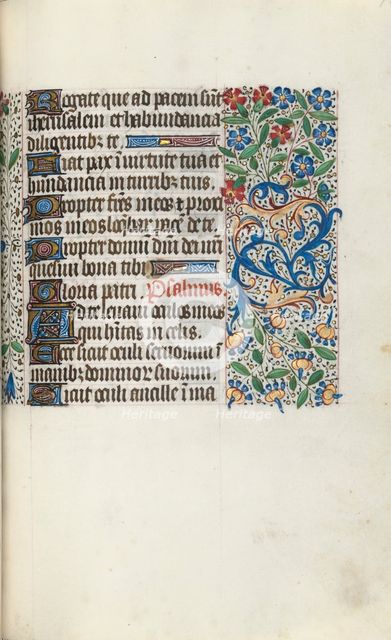 Rogate que ad pacem sūt
iherusalem et habundancia
diligentibꝫ te.
Fiat pax ī virtute tua et
hundancia in turribꝫ tuis.
Propter frēs meos et proxi
mos meos loq̄bar pacē de te.
Propter domū dnī dei nr̄i
quesiui bona tibi
Gloria patri. Psalmus.
Ad te leuaui oculos meos
qui hītas in celis.
Ecce sicut oculi seruorum ī
manibꝫ dominorꝫ suorum.
Sicut oculi ancille ī ma
Heritage Heritage